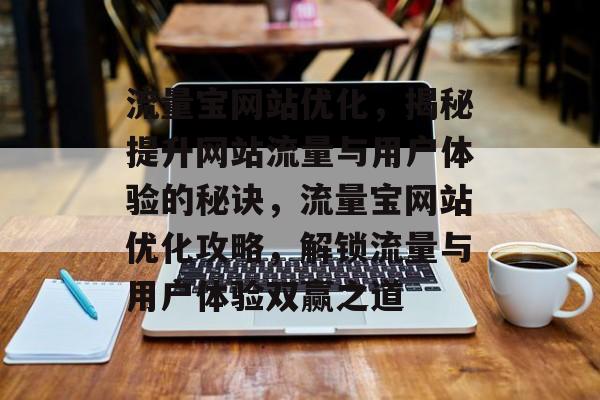 流量宝网站优化，揭秘
提升网站流量与用户体
验的秘诀，流量宝网站
优化攻略，解锁流量与
用户体验双赢之道